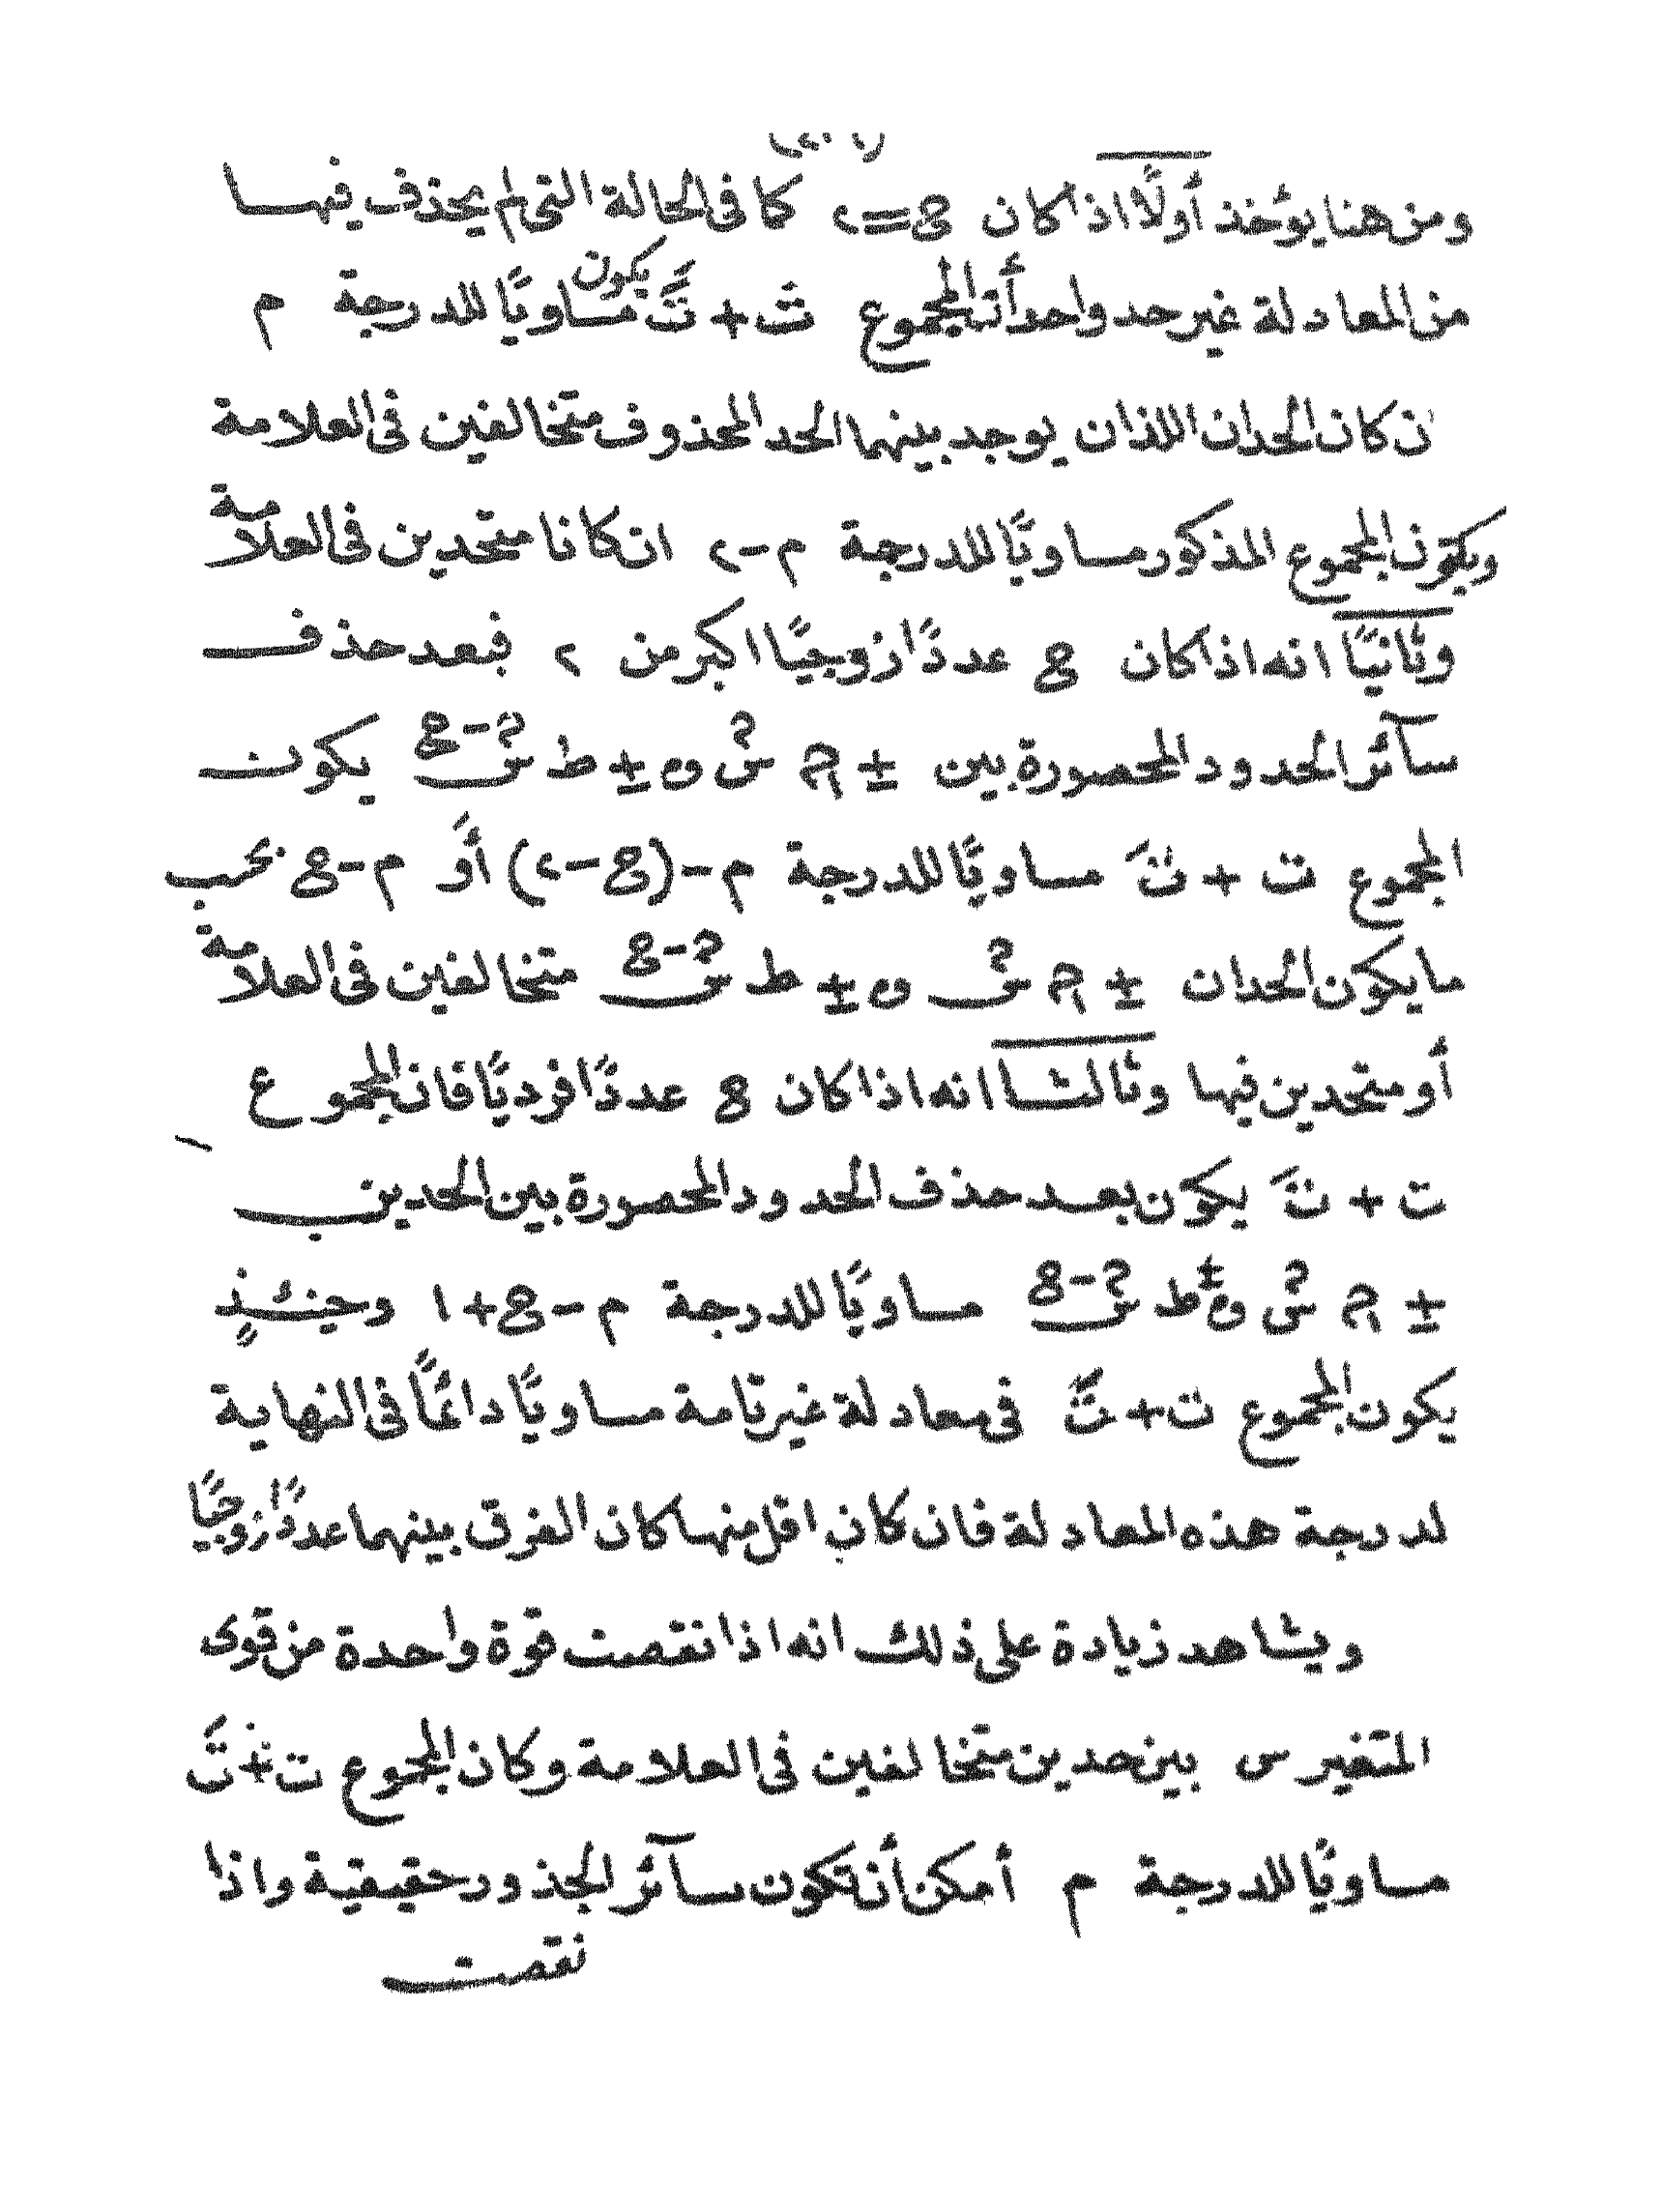 ومن هنا يؤخذ أولًا اذا كان ج = ٢ كما في الحالة التي لم يحذف فيها
من المعادلة غير حد واحد أنه المجموع ت + تَ يكون مساويًا للدرجة م
ن كان الحدان اللذان يوجد بينهما الحد المحذوف متخالفين في العلامة
ويكون المجموع المذكور مساويًا للدرجة م - ٢ ان كانا متحدين في العلامة
وثانيًا انه اذا كان ج عددًا زوجيًا اكبر من ٢ فبعد حذف
سآئر الحدود المحصورة بين ± م س و ± ط س يكون
المجموع ت + تَ مساويًا للدرجة م - (ج - ٢) أو م - ج بحسب
ما يكون الحدان ± م س و ± ط س متخالفين في العلامة
أو متحدين فيها وثالثا انه اذا كان ج عددًا فرديًا فان المجموع
ت + تَ يكون بعد حذف الحدود المحصورة بين الحدين
± م س و ± ط س مساويًا للدرجة م - ج + ١ وحينئذٍ
يكون المجموع ت + تَ في معادلة غير تامة مساويًا دائمًا في النهاية
لدرجة هذه المعادلة فان كان اقل منها كان الفرق بينهما عددًا زوجيًا
ويشاهد زيادة على ذلك انه اذا نقصت قوة واحدة من قوى
المتغير س بين حدين متخالفين في العلامة وكان المجموع ت + تَ
مساويًا للدرجة م أمكن أن تكون سآئر الجذور حقيقية واذا
نقصت